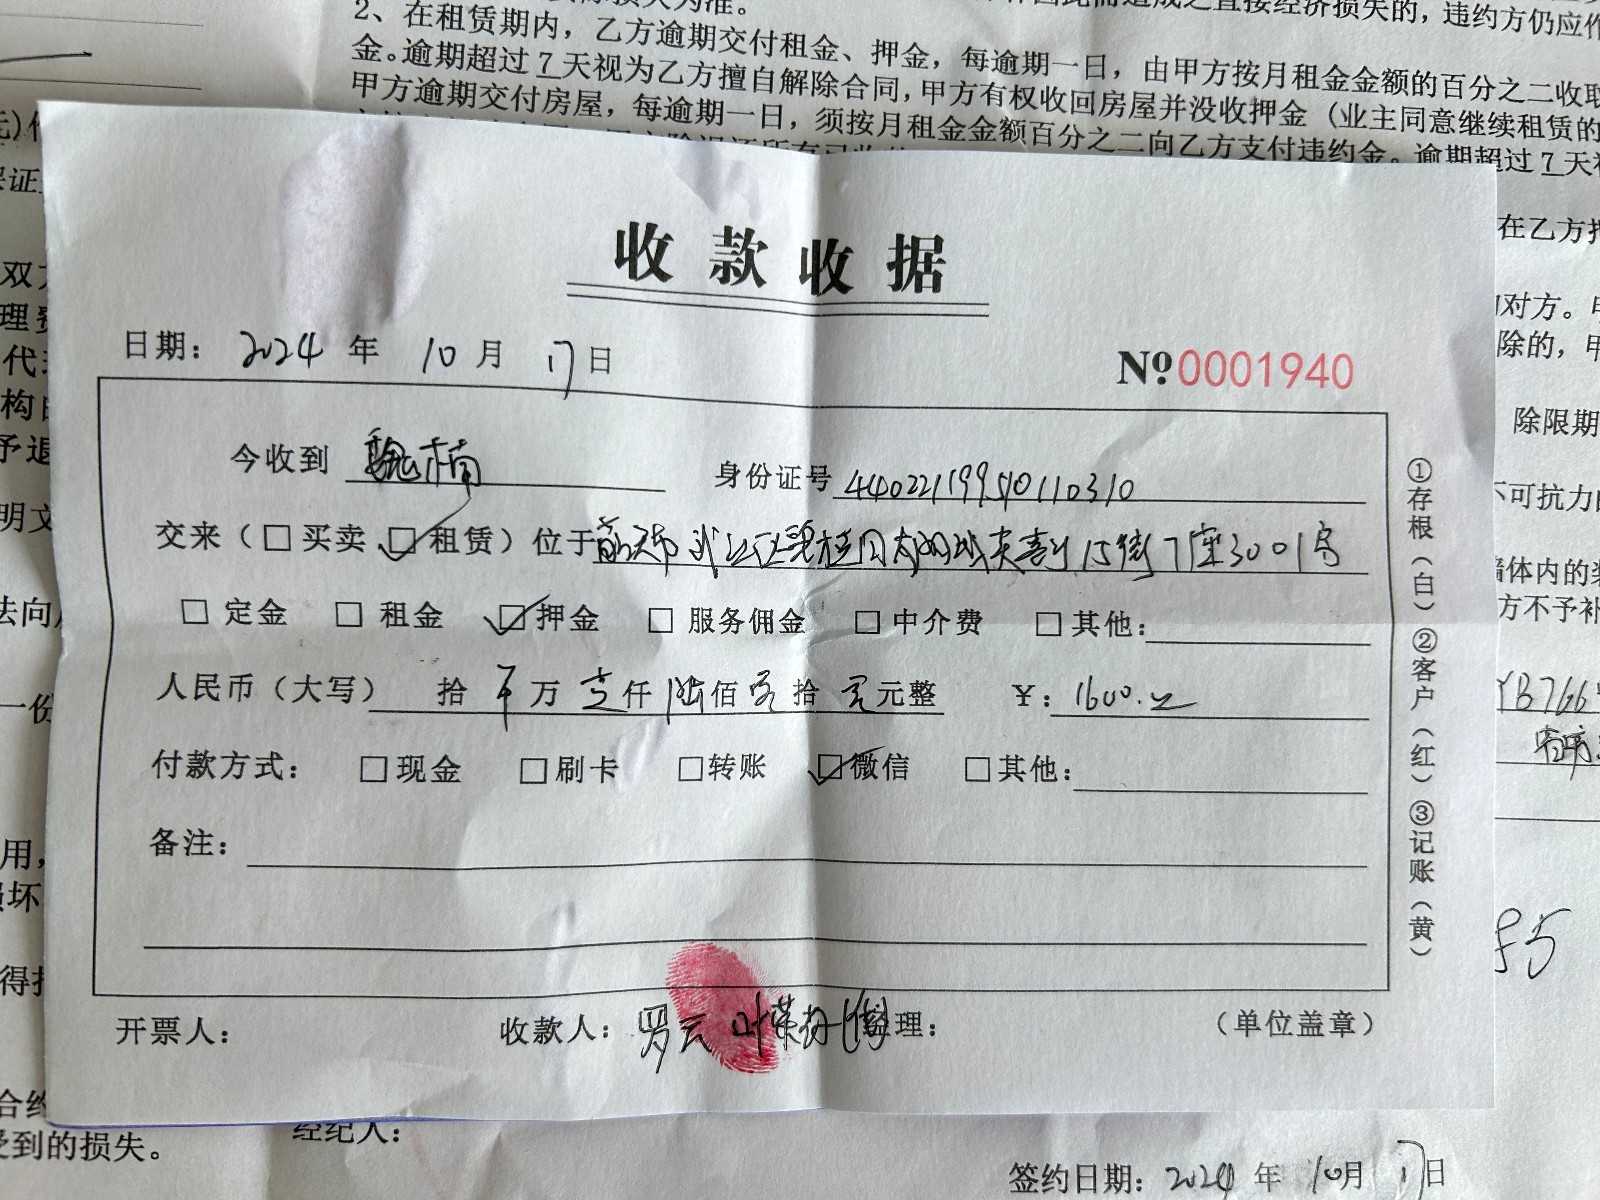 2、在租赁期内，乙方逾期交付租金、押金，每逾期一日，由甲方按月租金金额的百分之二收取
金。逾期超过7天视为乙方擅自解除合同，甲方有权收回房屋并没收押金（业主同意继续租赁的
甲方逾期交付房屋，每逾期一日，须按月租金金额百分之二向乙方支付违约金。逾期超过7天
收款收据
日期： 2024 年 10 月 17 日
№0001940
今收到 魏楠 身份证号 440221199510110310
交来（□买卖 ☑租赁）位于 武江区碧桂园太阳城芙蓉 15街7座3001房
□ 定金 □ 租金 ☑ 押金 □ 服务佣金 □ 中介费 □ 其他：
人民币（大写） 拾 万 壹仟 陆佰 零拾 零元整 ￥：1600.元
付款方式： □现金 □刷卡 □转账 ☑微信 □其他：
备注：
①存根（白）②客户（红）③记账（黄）
开票人： 收款人：罗云 叶荣 理： （单位盖章）
受到的损失。
经纪人：
签约日期：2024 年 10月 17日